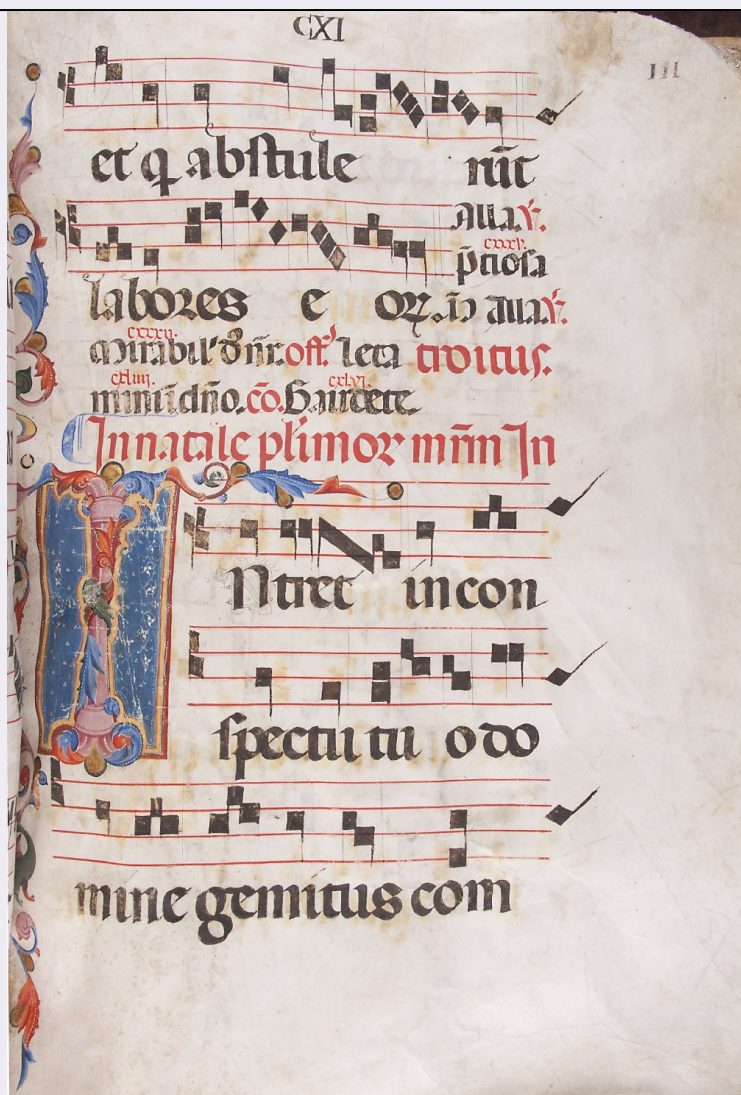 CXI
III
et q abstule rūt
Alla. ꝟ.
cxxxv.
p̄ciosa
labores e oꝝ. ꝟ Alla. ꝟ.
cxxxvi.
Mirabil' d' nr̄. off. Leta troitus.
cxliiij. cxlvi.
mini ī dn̄o. cō. Gaudete.
In natale pl̄imoꝝ mr̄m In
INtret in con
spectu tu o do
mine gemitus com